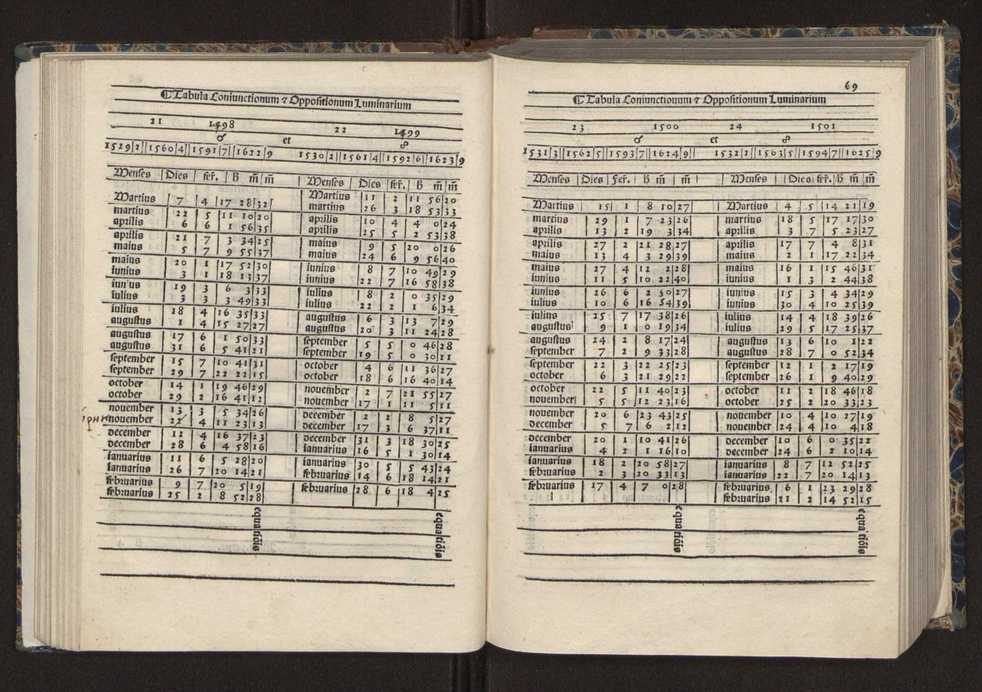 ¶Tabula Coniunctionum ⁊ Oppositionum Luminarium
21 1498 22 1499
☌ et ☍
1529|2||1560|4||1591|7||1622|9 1530|2||1561|4||1592|6||1623|9
Menses |Dies| fer.| H m̄ m̄ Menses |Dies| fer.| H m̄| m̄
Martius 7 4 17 28 32 Martius 11 2 11 56 20
martius 22 5 11 10 20 martius 26 3 18 53 33
aprilis 6 6 1 56 35 aprilis 10 4 4 0 24
aprilis 21 7 3 34 25 aprilis 25 5 2 53 38
maius 5 7 9 55 37 maius 9 5 20 0 26
maius 20 1 17 52 30 maius 24 6 9 56 40
iunius 3 1 18 13 37 iunius 8 7 10 49 29
iunius 19 3 6 3 33 iunius 22 7 16 58 38
iulius 3 3 3 49 33 iulius 8 2 0 35 29
iulius 18 4 16 35 33 iulius 22 2 1 6 34
augustus 1 4 15 27 27 augustus 6 3 13 7 29
augustus 17 6 1 50 33 augustus 20 3 11 24 28
augustus 31 6 5 41 21 september 5 5 0 46 28
september 15 7 10 41 31 september 19 5 0 30 21
september 29 7 22 22 15 october 4 6 11 36 27
october 14 1 19 46 29 october 18 6 16 40 14
october 29 2 16 41 12 november 2 7 21 55 27
november 13 3 5 34 26 november 17 1 11 5 11
november 22 4 11 23 13 december 2 2 8 5 27
december 12 4 16 37 23 december 17 3 6 37 11
december 28 6 4 58 16 december 31 3 18 30 25
ianuarius 11 6 5 28 20 ianuarius 16 5 1 30 14
ianuarius 26 7 20 14 21 ianuarius 30 5 5 43 24
februarius 9 7 20 5 19 februarius 14 6 18 14 21
februarius 25 2 8 52 28 februarius 28 6 18 4 25
69
¶Tabula Coniunctionum ⁊ Oppositionum Luminarium
23 1500 24 1501
☌ et ☍
1531|3||1562|5||1593|7||1624|9| 1532|2||1563|5||1594|7||1625|9
Menses |Dies| Fer.| H m̄ |m̄ Menses |Dies| fer.| H m̄ m̄
Martius 15 1 8 10 27 Martius 4 5 14 21 19
martius 29 1 7 23 26 martius 18 5 17 17 30
aprilis 13 2 19 3 34 aprilis 3 7 5 23 27
aprilis 27 2 21 28 27 aprilis 17 7 4 8 31
maius 13 4 3 29 39 maius 2 1 17 22 34
maius 27 4 12 2 28 maius 16 1 15 46 31
iunius 11 5 10 22 40 iunius 1 3 2 44 38
iunius 26 6 2 30 27 iunius 15 3 4 34 29
iulius 10 6 16 54 39 iulius 30 4 10 25 39
iulius 25 7 17 38 26 iulius 14 4 18 39 26
augustus 9 1 0 19 34 iulius 29 5 17 25 37
augustus 24 2 8 17 24 augustus 13 6 10 1 22
september 7 2 9 33 28 augustus 28 7 0 52 34
september 22 3 22 25 23 september 12 1 2 17 19
october 6 3 21 29 22 september 26 1 9 40 29
october 22 5 11 40 23 october 11 2 18 46 18
november 5 5 12 23 16 october 25 2 20 33 23
november 20 6 23 43 25 november 10 4 10 27 19
december 5 7 6 2 12 november 24 4 10 4 18
december 20 1 10 41 26 december 10 6 0 35 22
ianuarius 4 2 1 16 10 december 24 6 2 10 14
ianuarius 18 2 20 58 27 ianuarius 8 7 12 52 25
februarius 2 3 20 33 13 ianuarius 22 7 20 14 13
februarius 17 4 7 0 28 februarius 6 1 23 29 28
februarius 21 2 14 52 15